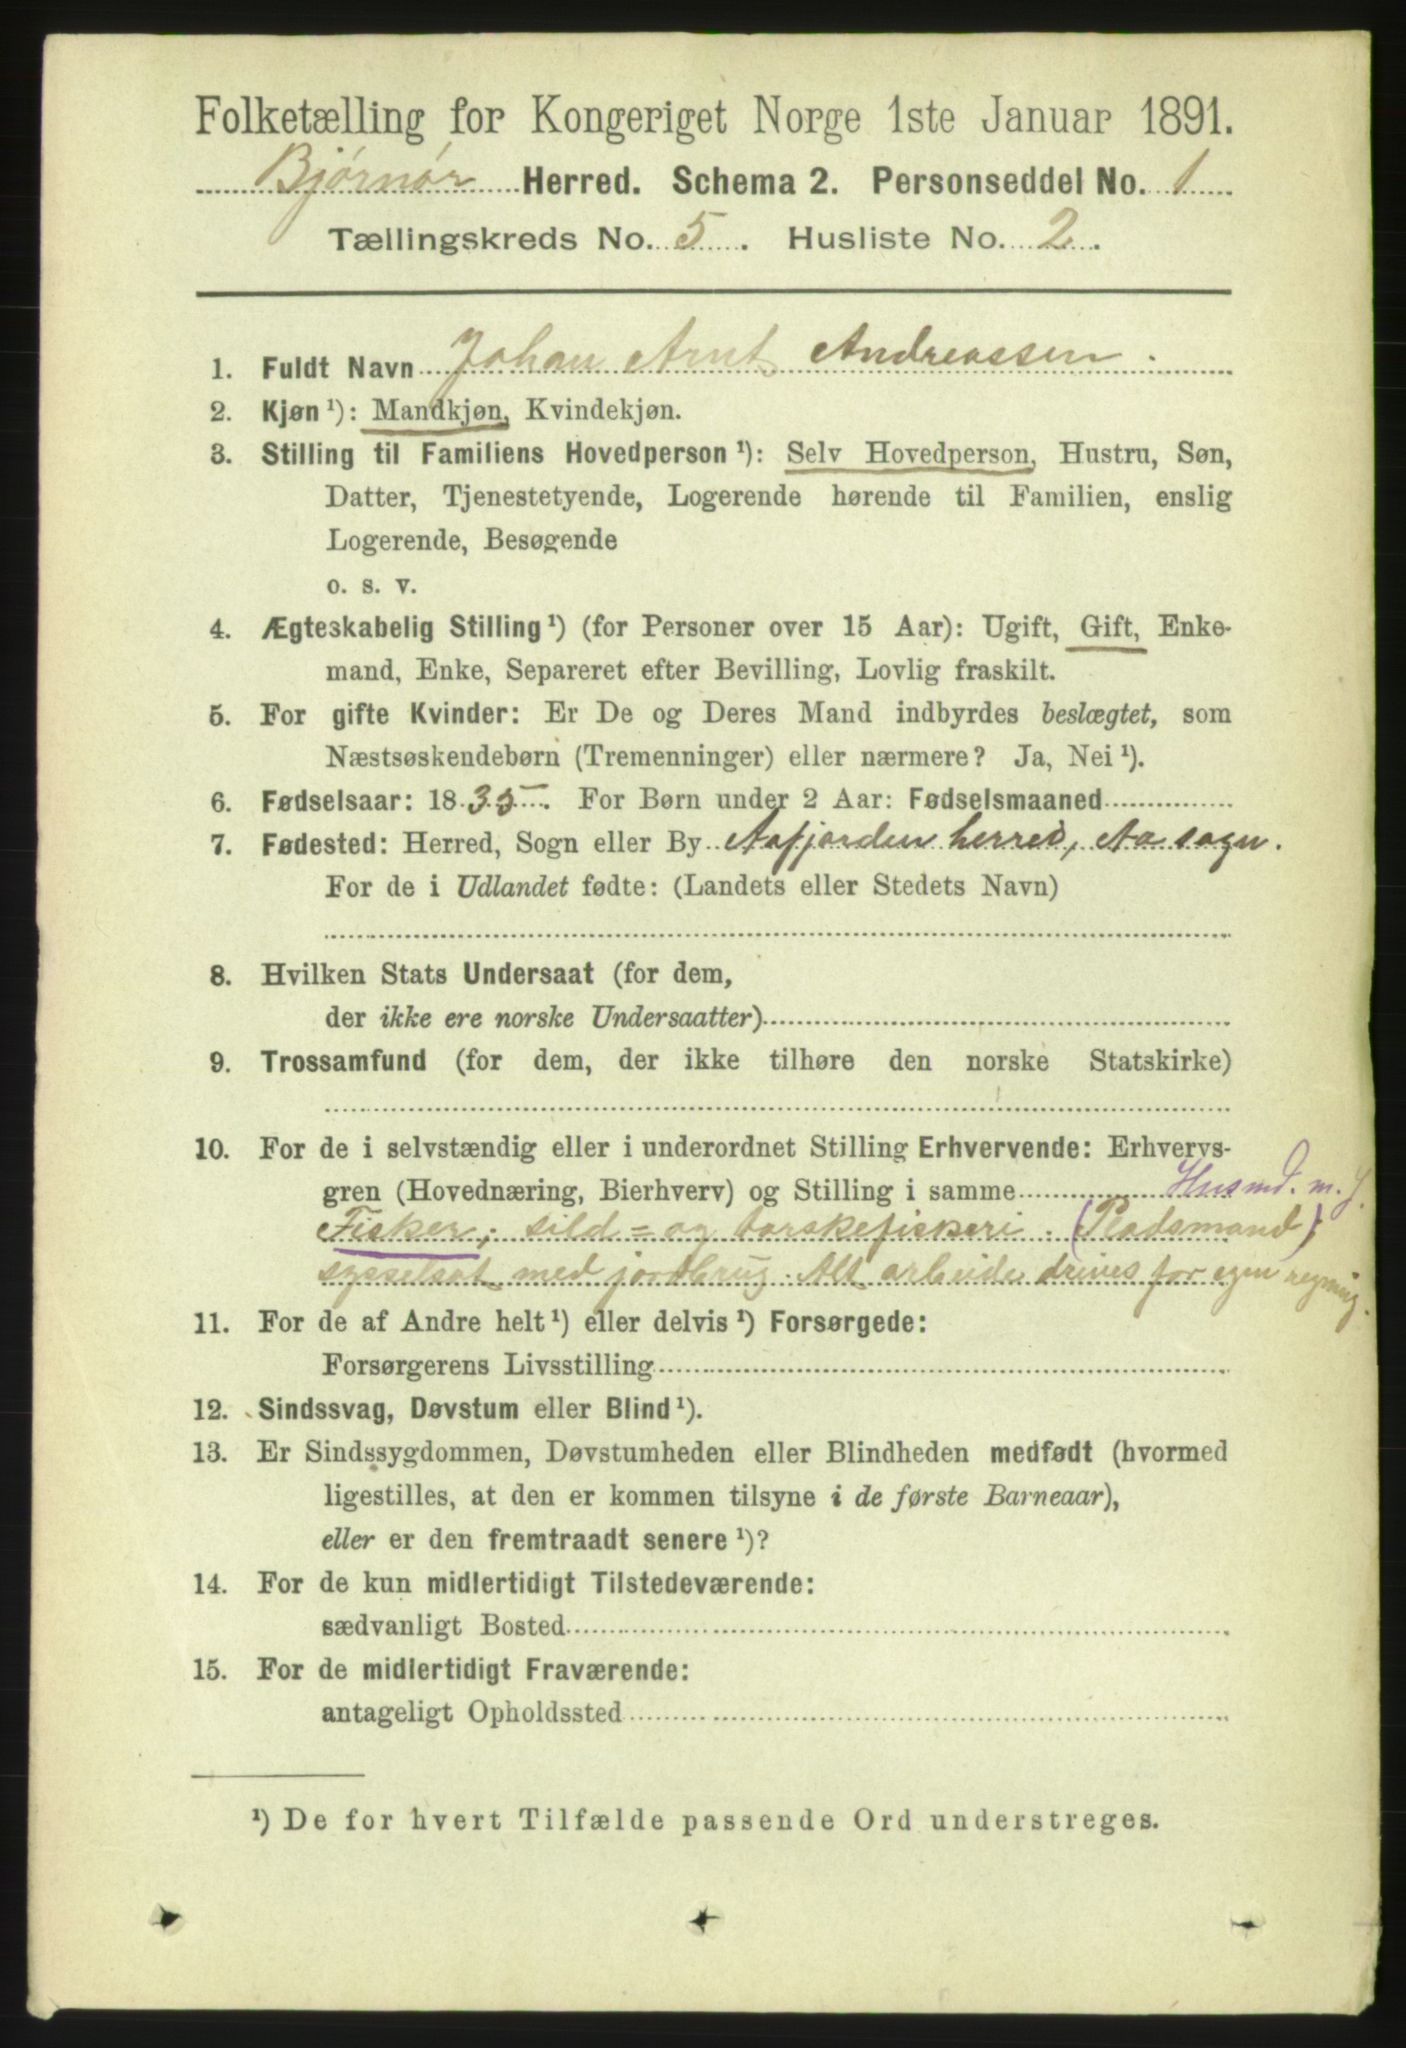 Folketælling for Kongeriget Norge 1ste Januar 1891.
Bjørnør Herred. Schema 2. Personseddel No. 1
Tællingskreds No. 5. Husliste No. 2.
1. Fuldt Navn Johan Arnt Andreassen.
2. Kjøn ¹): Mandkjøn, Kvindekjøn.
3. Stilling til Familiens Hovedperson ¹): Selv Hovedperson, Hustru, Søn,
Datter, Tjenestetyende, Logerende hørende til Familien, enslig
Logerende, Besøgende
o. s. v.
4. Ægteskabelig Stilling ¹) (for Personer over 15 Aar): Ugift, Gift, Enke-
mand, Enke, Separeret efter Bevilling, Lovlig fraskilt.
5. For gifte Kvinder: Er De og Deres Mand indbyrdes beslægtet, som
Næstsøskendebørn (Tremenninger) eller nærmere? Ja, Nei ¹).
6. Fødselsaar: 1835. For Børn under 2 Aar: Fødselsmaaned
7. Fødested: Herred, Sogn eller By Aafjorden herred, Aa sogn.
For de i Udlandet fødte: (Landets eller Stedets Navn)
8. Hvilken Stats Undersaat (for dem,
der ikke ere norske Undersaatter)
9. Trossamfund (for dem, der ikke tilhøre den norske Statskirke)
10. For de i selvstændig eller i underordnet Stilling Erhvervende: Erhvervs-
gren (Hovednæring, Bierhverv) og Stilling i samme Husmd. m. J.
Fisker; sild= og torskefiskeri. (Pladsmand)
sysselsat med jordbrug. Alt arbeide drives for egen regning.
11. For de af Andre helt ¹) eller delvis ¹) Forsørgede:
Forsørgerens Livsstilling
12. Sindssvag, Døvstum eller Blind ¹).
13. Er Sindssygdommen, Døvstumheden eller Blindheden medfødt (hvormed
ligestilles, at den er kommen tilsyne i de første Barneaar),
eller er den fremtraadt senere ¹)?
14. For de kun midlertidigt Tilstedeværende:
sædvanligt Bosted
15. For de midlertidigt Fraværende:
antageligt Opholdssted
¹) De for hvert Tilfælde passende Ord understreges.